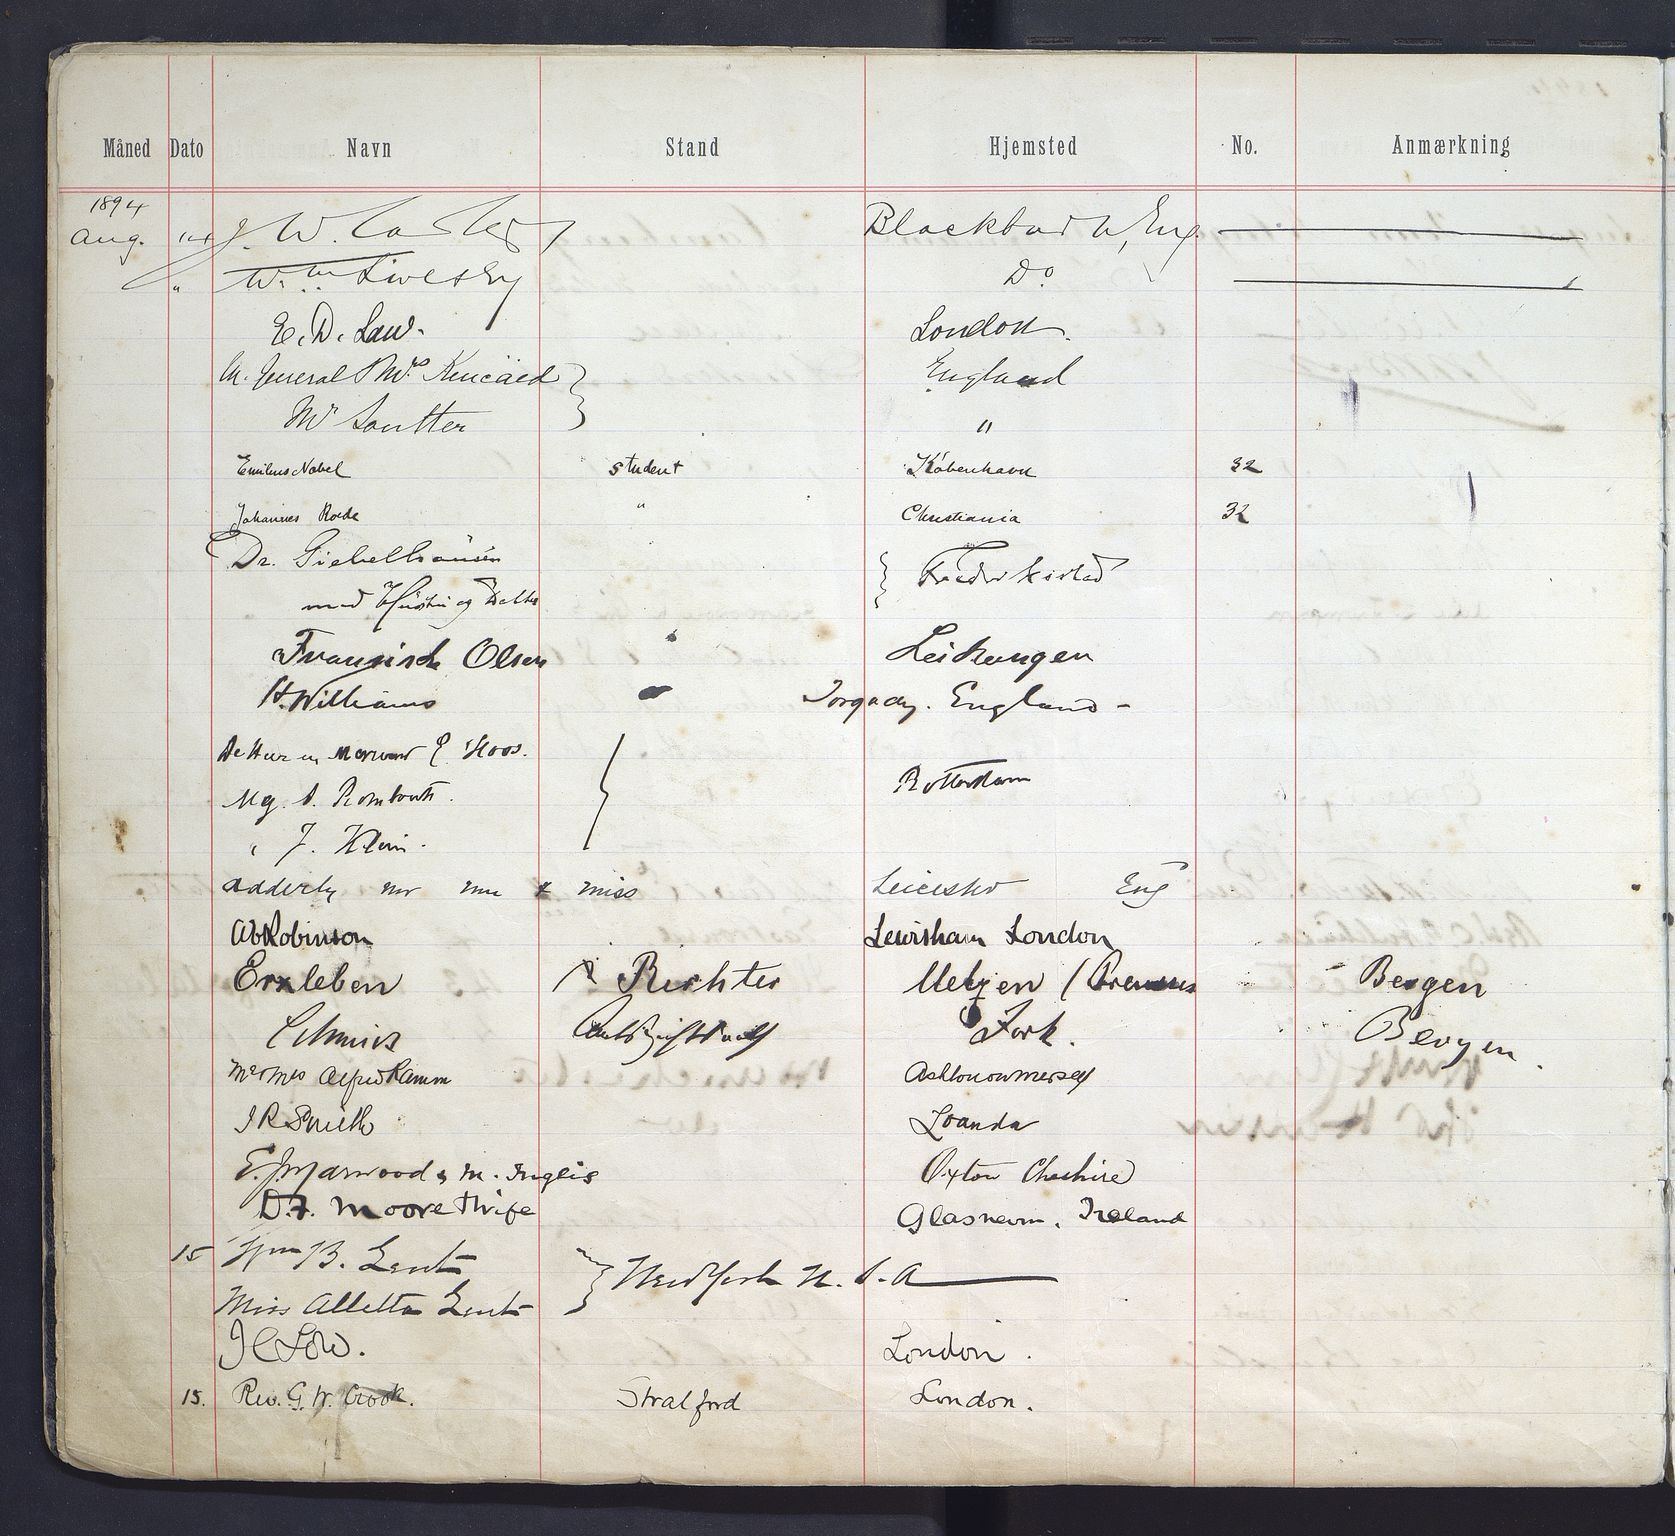 Måned Dato Navn Stand Hjemsted No. Anmærkning
1894
Aug. 14 J. W. Blackburn, Eng.
" Wm. Livesey Do
E. D. Law. London.
M. General & Mrs Kincaid England
Mr Soutter "
Emilius Nobel student København 32
Johannes Rode " Christiania 32
Dr. Giebelhausen Frederikstad
med Hustru og Datter
Fransiska Olsen Leikangen
H. Williams Torquay. England -
De Heer en Mevrouw E. Hoos.
Mej. A. Rombouts. Rotterdam
" J. Klein.
Adderly mr mrs & miss Leicester Eng
Robinson Lewisham London
Erxleben Richter Uelzen / Bergen
Jork. Bergen
Mr & Mrs Alfred Ramm Ashton on Mersey
J R Smith Loanda
E. J. Marwood & M. Inglis Oxton Cheshire
D. F. Moore & wife Glasnevin. Ireland
15 Wm B. Lent New York U.S.A
Miss Alletta Lent
J C Low. London.
15. Rev. G. W. Crook. Stratford London.